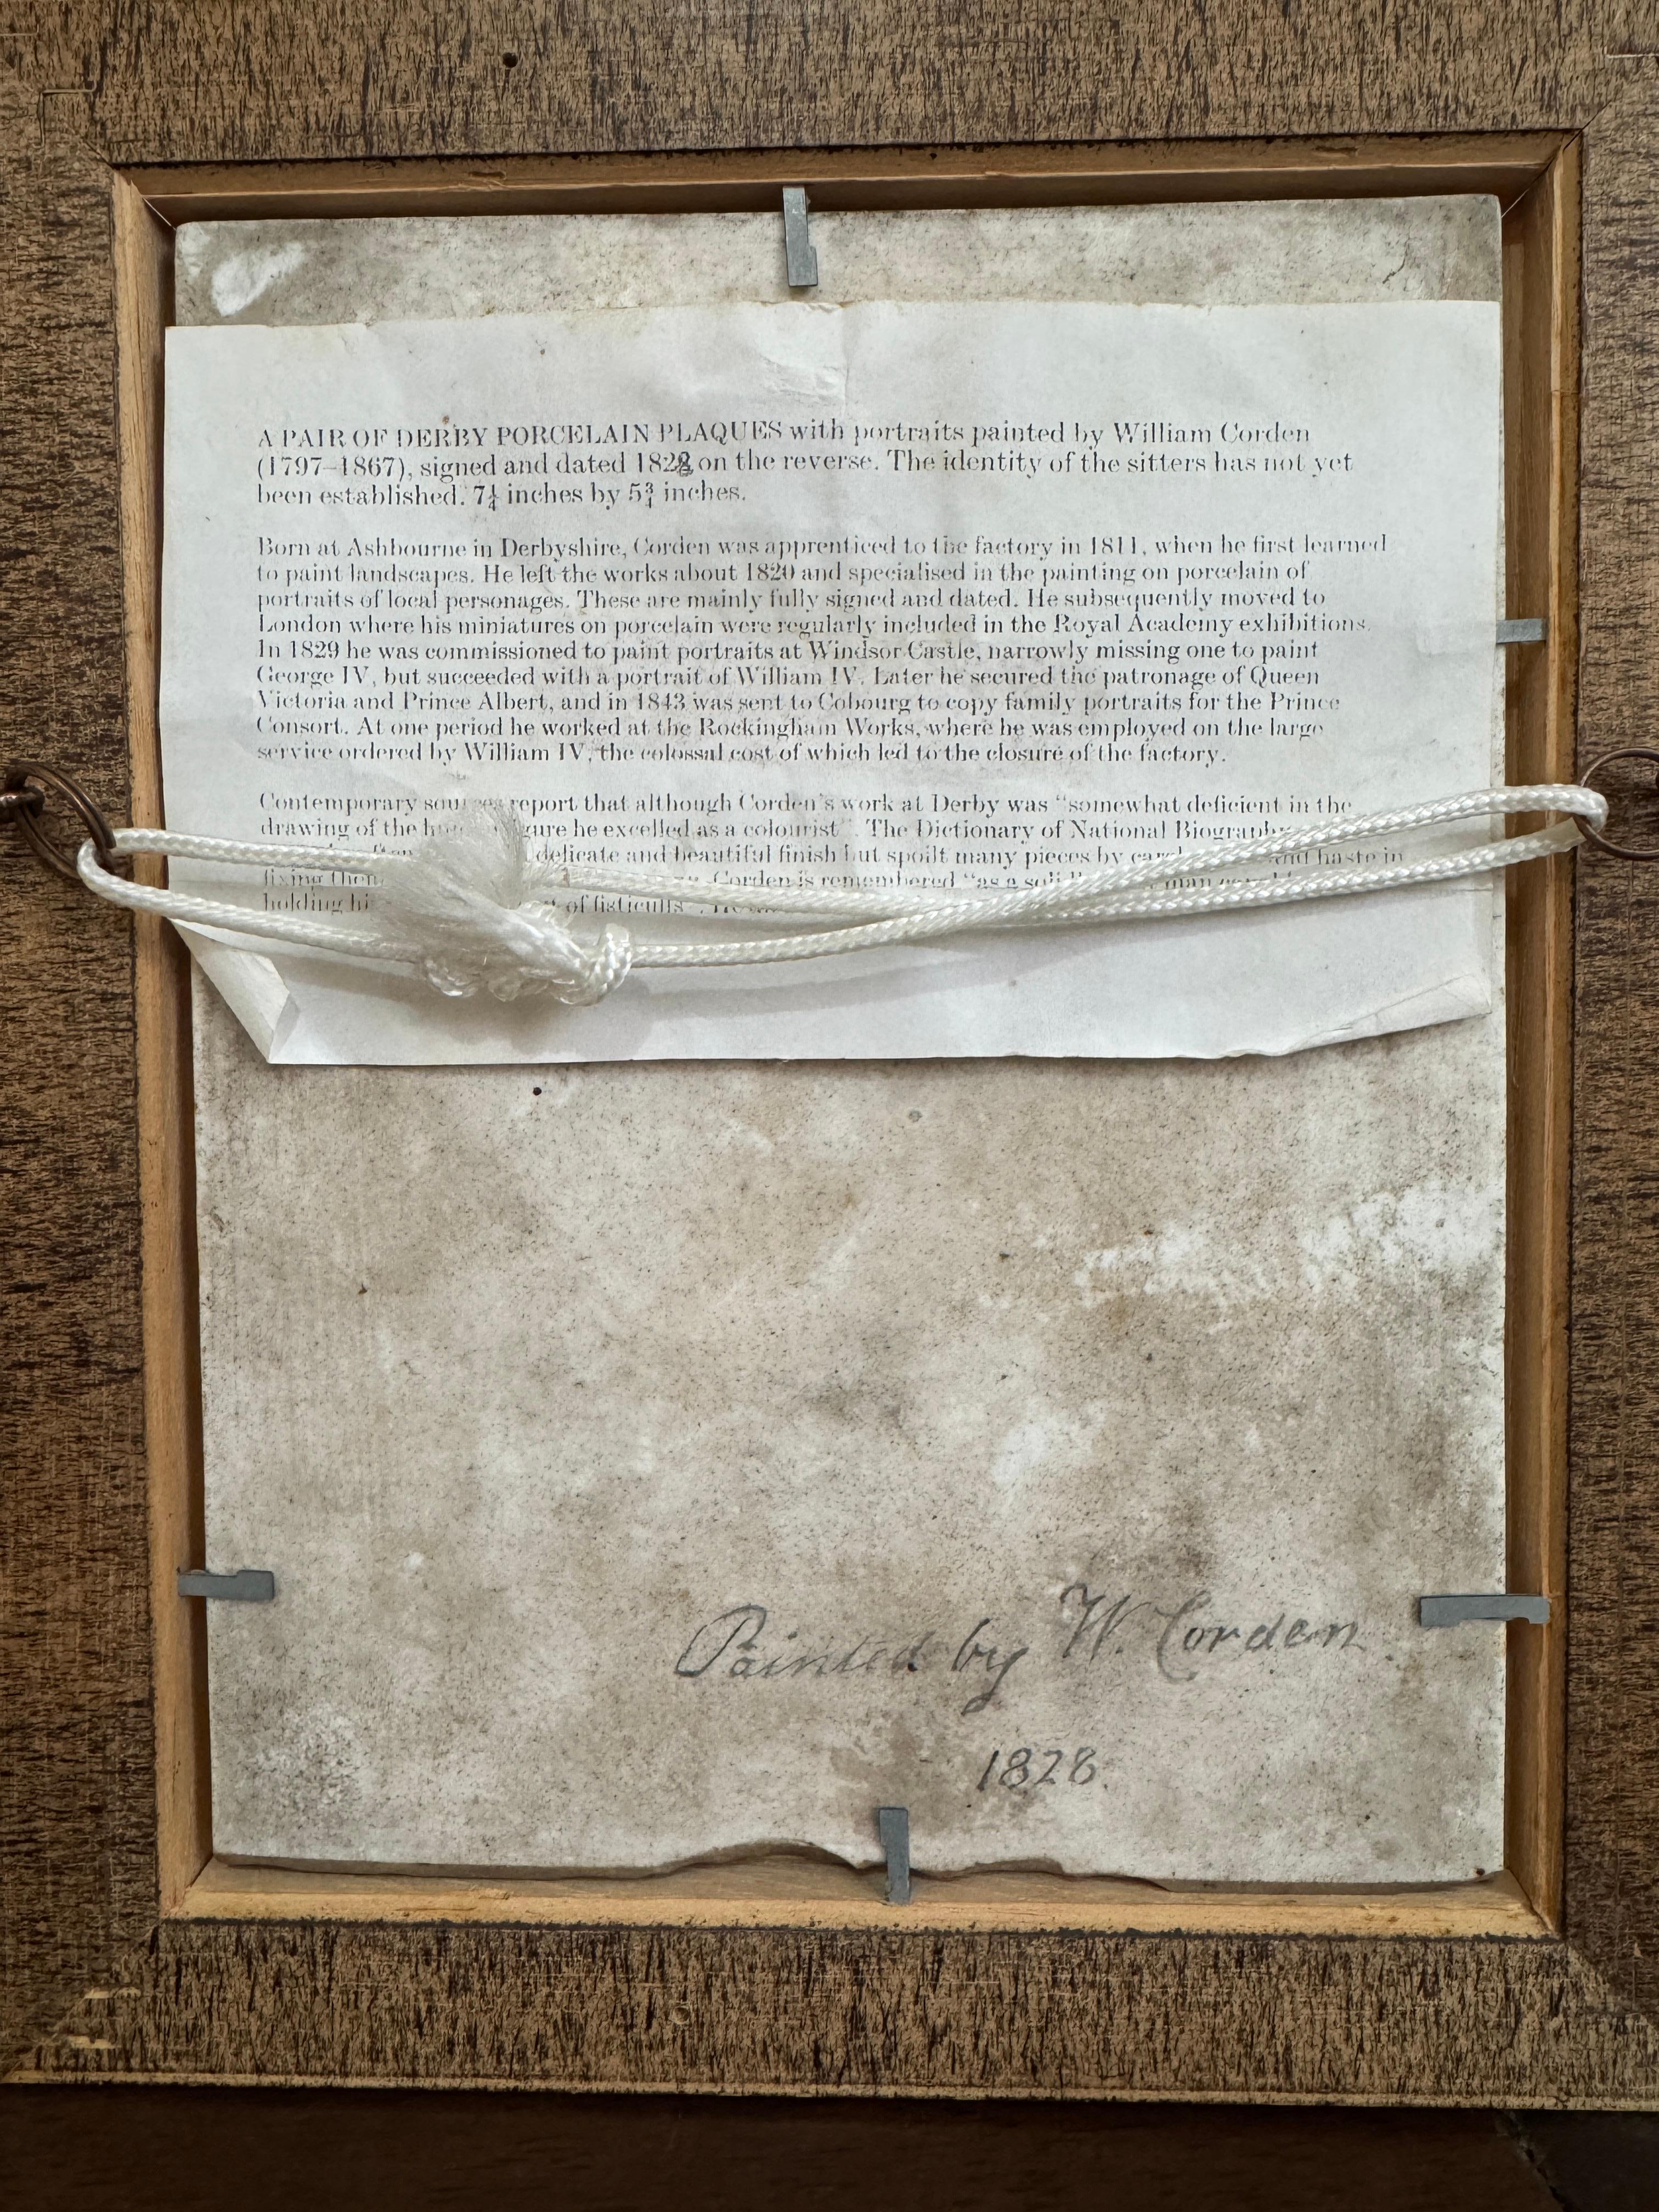 A PAIR OF DERBY PORCELAIN PLAQUES with portraits painted by William Corden
(1797–1867), signed and dated 1828 on the reverse. The identity of the sitters has not yet
been established. 7¼ inches by 5¾ inches.
Born at Ashbourne in Derbyshire, Corden was apprenticed to the factory in 1811, when he first learned
to paint landscapes. He left the works about 1820 and specialised in the painting on porcelain of
portraits of local personages. These are mainly fully signed and dated. He subsequently moved to
London where his miniatures on porcelain were regularly included in the Royal Academy exhibitions.
In 1829 he was commissioned to paint portraits at Windsor Castle, narrowly missing one to paint
George IV, but succeeded with a portrait of William IV. Later he secured the patronage of Queen
Victoria and Prince Albert, and in 1843 was sent to Cobourg to copy family portraits for the Prince
Consort. At one period he worked at the Rockingham Works, where he was employed on the large
service ordered by William IV, the colossal cost of which led to the closure of the factory.
Contemporary sources report that although Corden's work at Derby was "somewhat deficient in the
drawing of the figure he excelled as a colourist". The Dictionary of National Biography
delicate and beautiful finish but spoilt many pieces by and haste in
fixing them Corden is remembered "as a man
holding of fisticuffs".
Painted by W. Corden
1828.